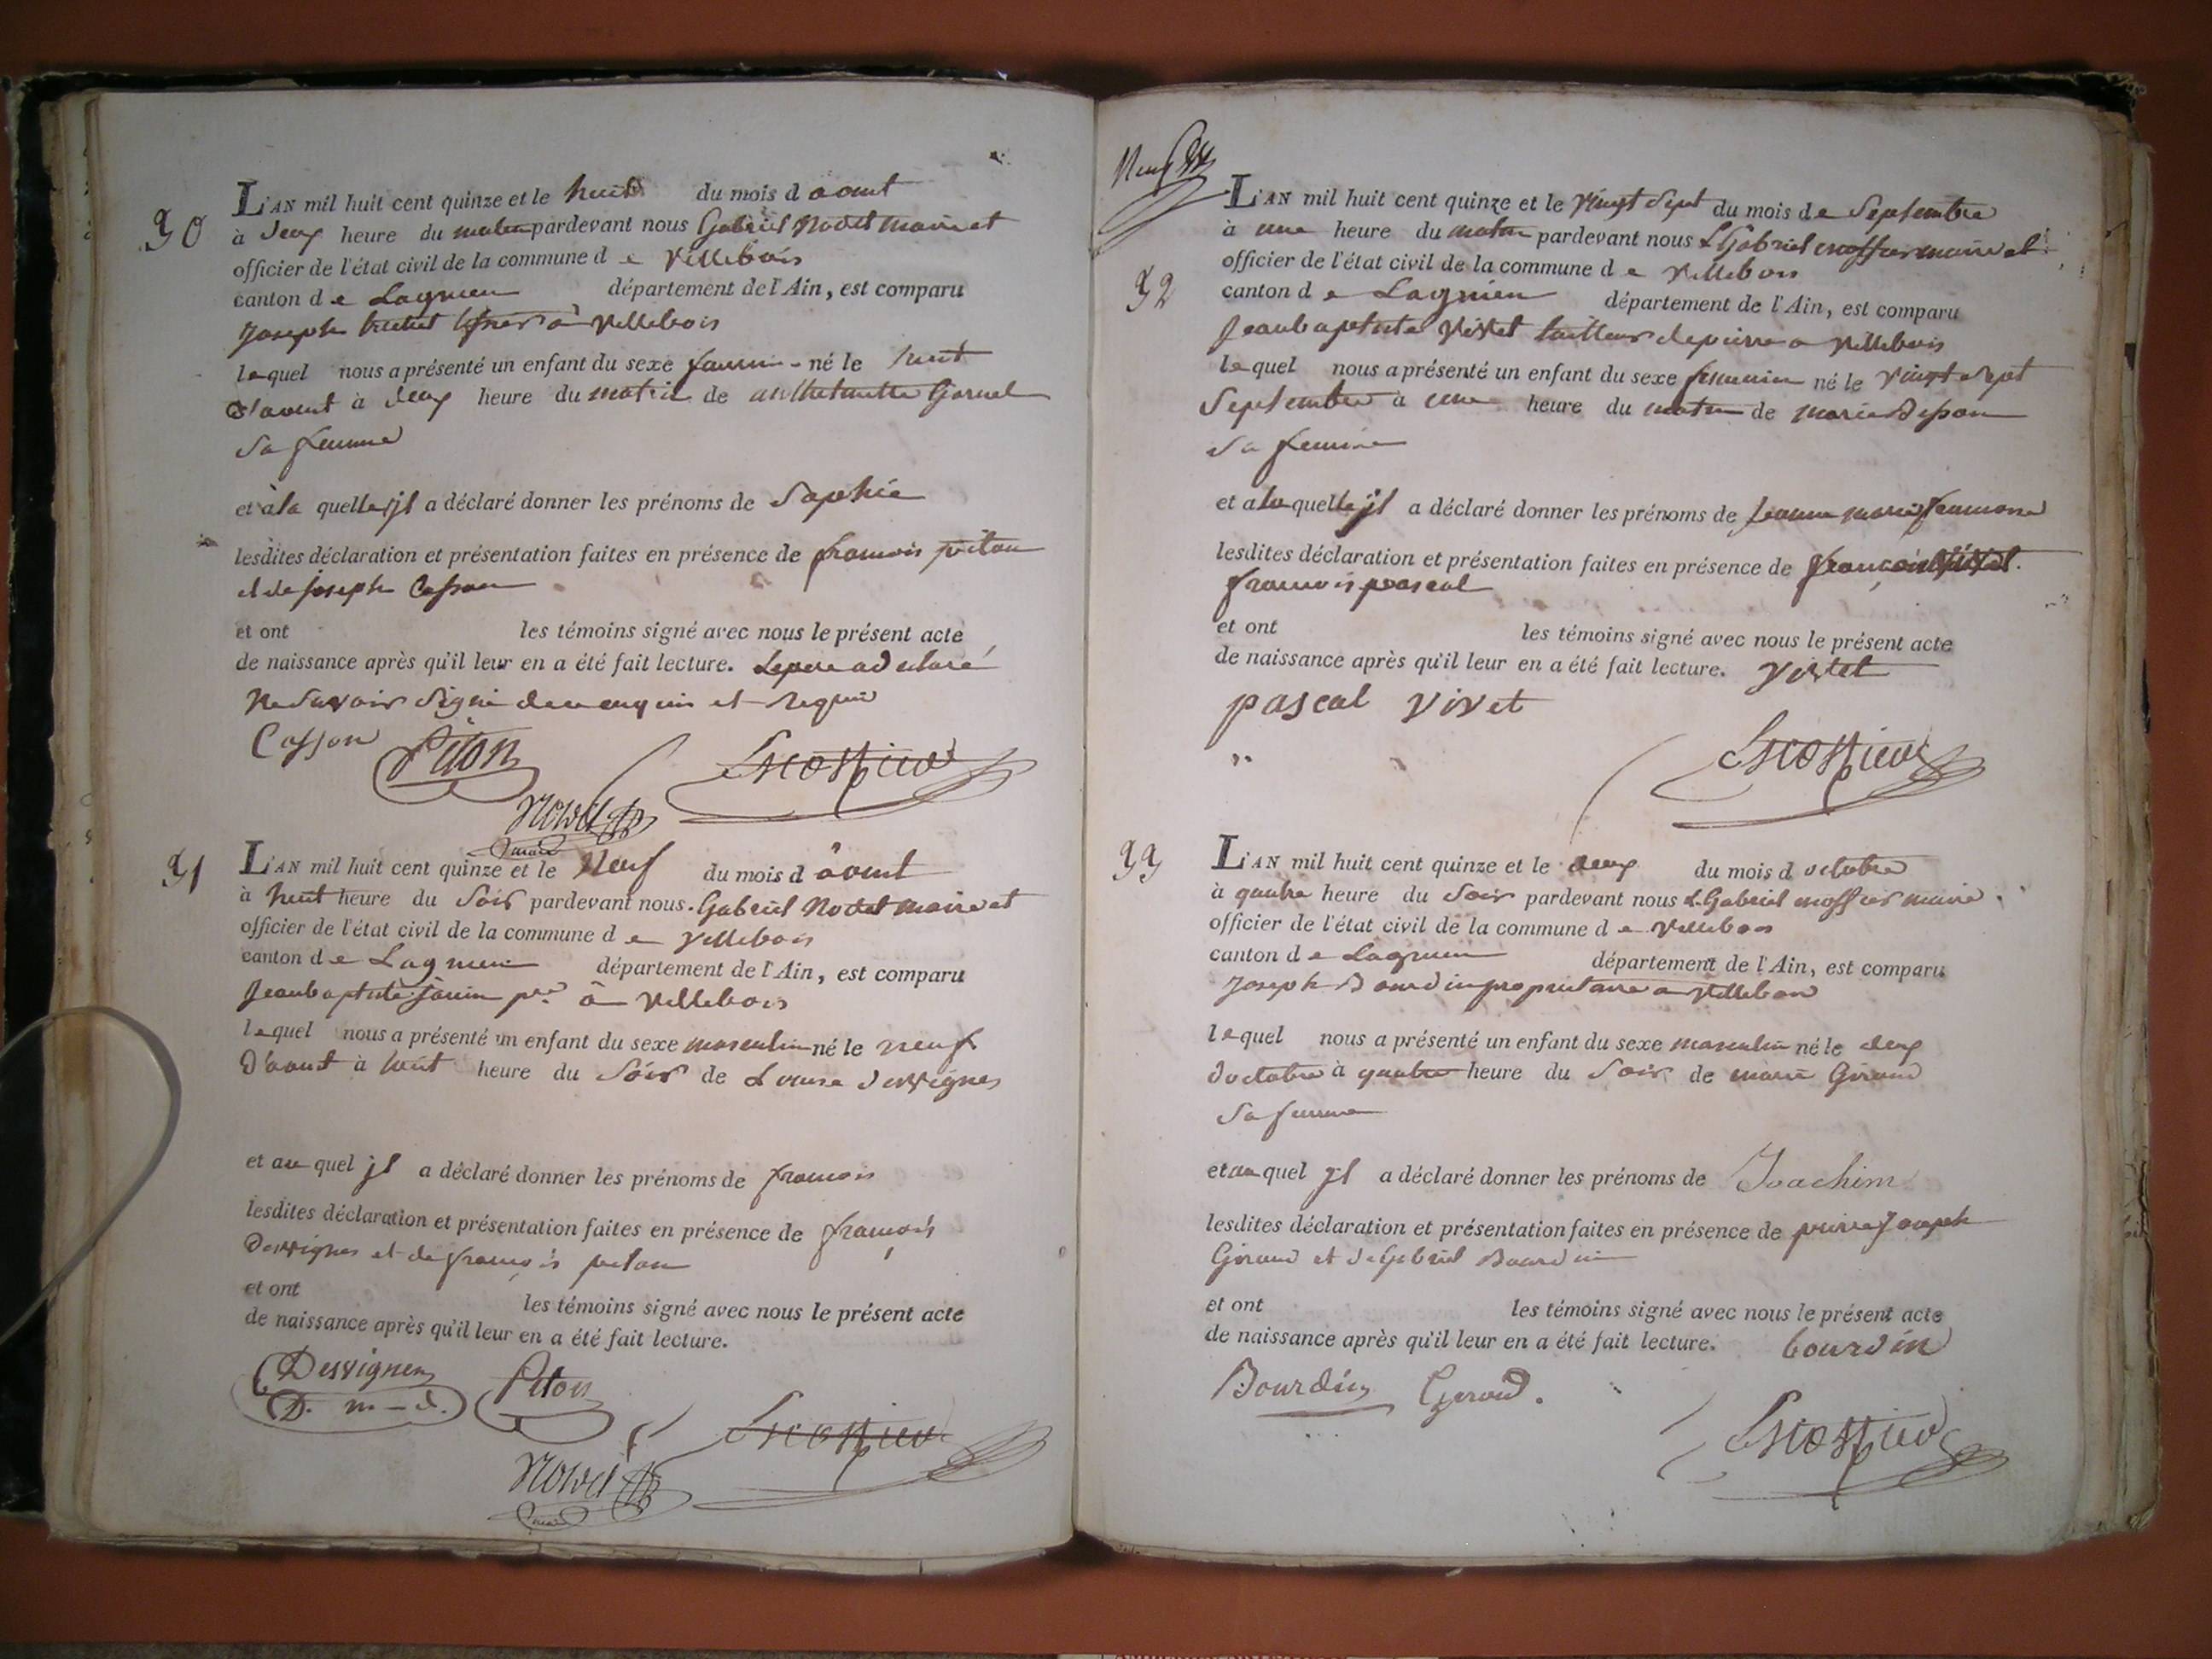 30
L'AN mil huit cent quinze et le huit du mois d aout
à deux heure du matin pardevant nous Gabriel Nodet maire et
officier de l'état civil de la commune d e Villebois
canton d e Lagnieu département de l'Ain, est comparu
Joseph à Villebois
lequel nous a présenté un enfant du sexe né le huit
d'aout à deux heure du matin de
sa femme
et à la quelle jl a déclaré donner les prénoms de Sophie
lesdites déclaration et présentation faites en présence de francois piton
et de joseph Casson
et ont les témoins signé avec nous le présent acte
de naissance après qu'il leur en a été fait lecture. Le pere a déclaré
ne savoir signé de ce enquis et requis
Casson Piton
31
L'AN mil huit cent quinze et le Neuf du mois d àout
à huit heure du soir pardevant nous Gabriel Nodet maire et
officier de l'état civil de la commune d e Villebois
canton d e Lagnieu département de l'Ain, est comparu
Jeanbaptiste pre à Villebois
lequel nous a présenté un enfant du sexe masculin né le neuf
d'aout à huit heure du Soir de Louise Desvignes
et au quel jl a déclaré donner les prénoms de francois
lesdites déclaration et présentation faites en présence de françois
Desvignes et de françois piton
et ont les témoins signé avec nous le présent acte
de naissance après qu'il leur en a été fait lecture.
Desvignes Piton
D. m-d.
32
L'AN mil huit cent quinze et le Vingt Sept du mois d e Septembre
à une heure du matin pardevant nous Gabriel maire et
officier de l'état civil de la commune d e Villebois
canton d e Lagnieu département de l'Ain, est comparu
Jeanbaptiste Vivet tailleur de pierre a Villebois
lequel nous a présenté un enfant du sexe feminin né le Vingt Sept
Septembre à une heure du matin de marie
sa femme
et a la quelle jl a déclaré donner les prénoms de jeanne marie
lesdites déclaration et présentation faites en présence de françois Vivet
francois pascal
et ont les témoins signé avec nous le présent acte
de naissance après qu'il leur en a été fait lecture. Vivet
pascal Vivet
33
L'AN mil huit cent quinze et le deux du mois d octobre
à quatre heure du Soir pardevant nous Gabriel maire
officier de l'état civil de la commune d e Villebois
canton d e Lagnieu département de l'Ain, est comparu
Joseph Bourdin proprietaire a Villebois
lequel nous a présenté un enfant du sexe masculin né le deux
doctobre à quatre heure du Soir de marie Giroud
Sa femme
et au quel jl a déclaré donner les prénoms de Joachim
lesdites déclaration et présentation faites en présence de pierre Joseph
Giroud et de Gabriel Bourdin
et ont les témoins signé avec nous le présent acte
de naissance après qu'il leur en a été fait lecture. bourdin
Bourdin Giroud.